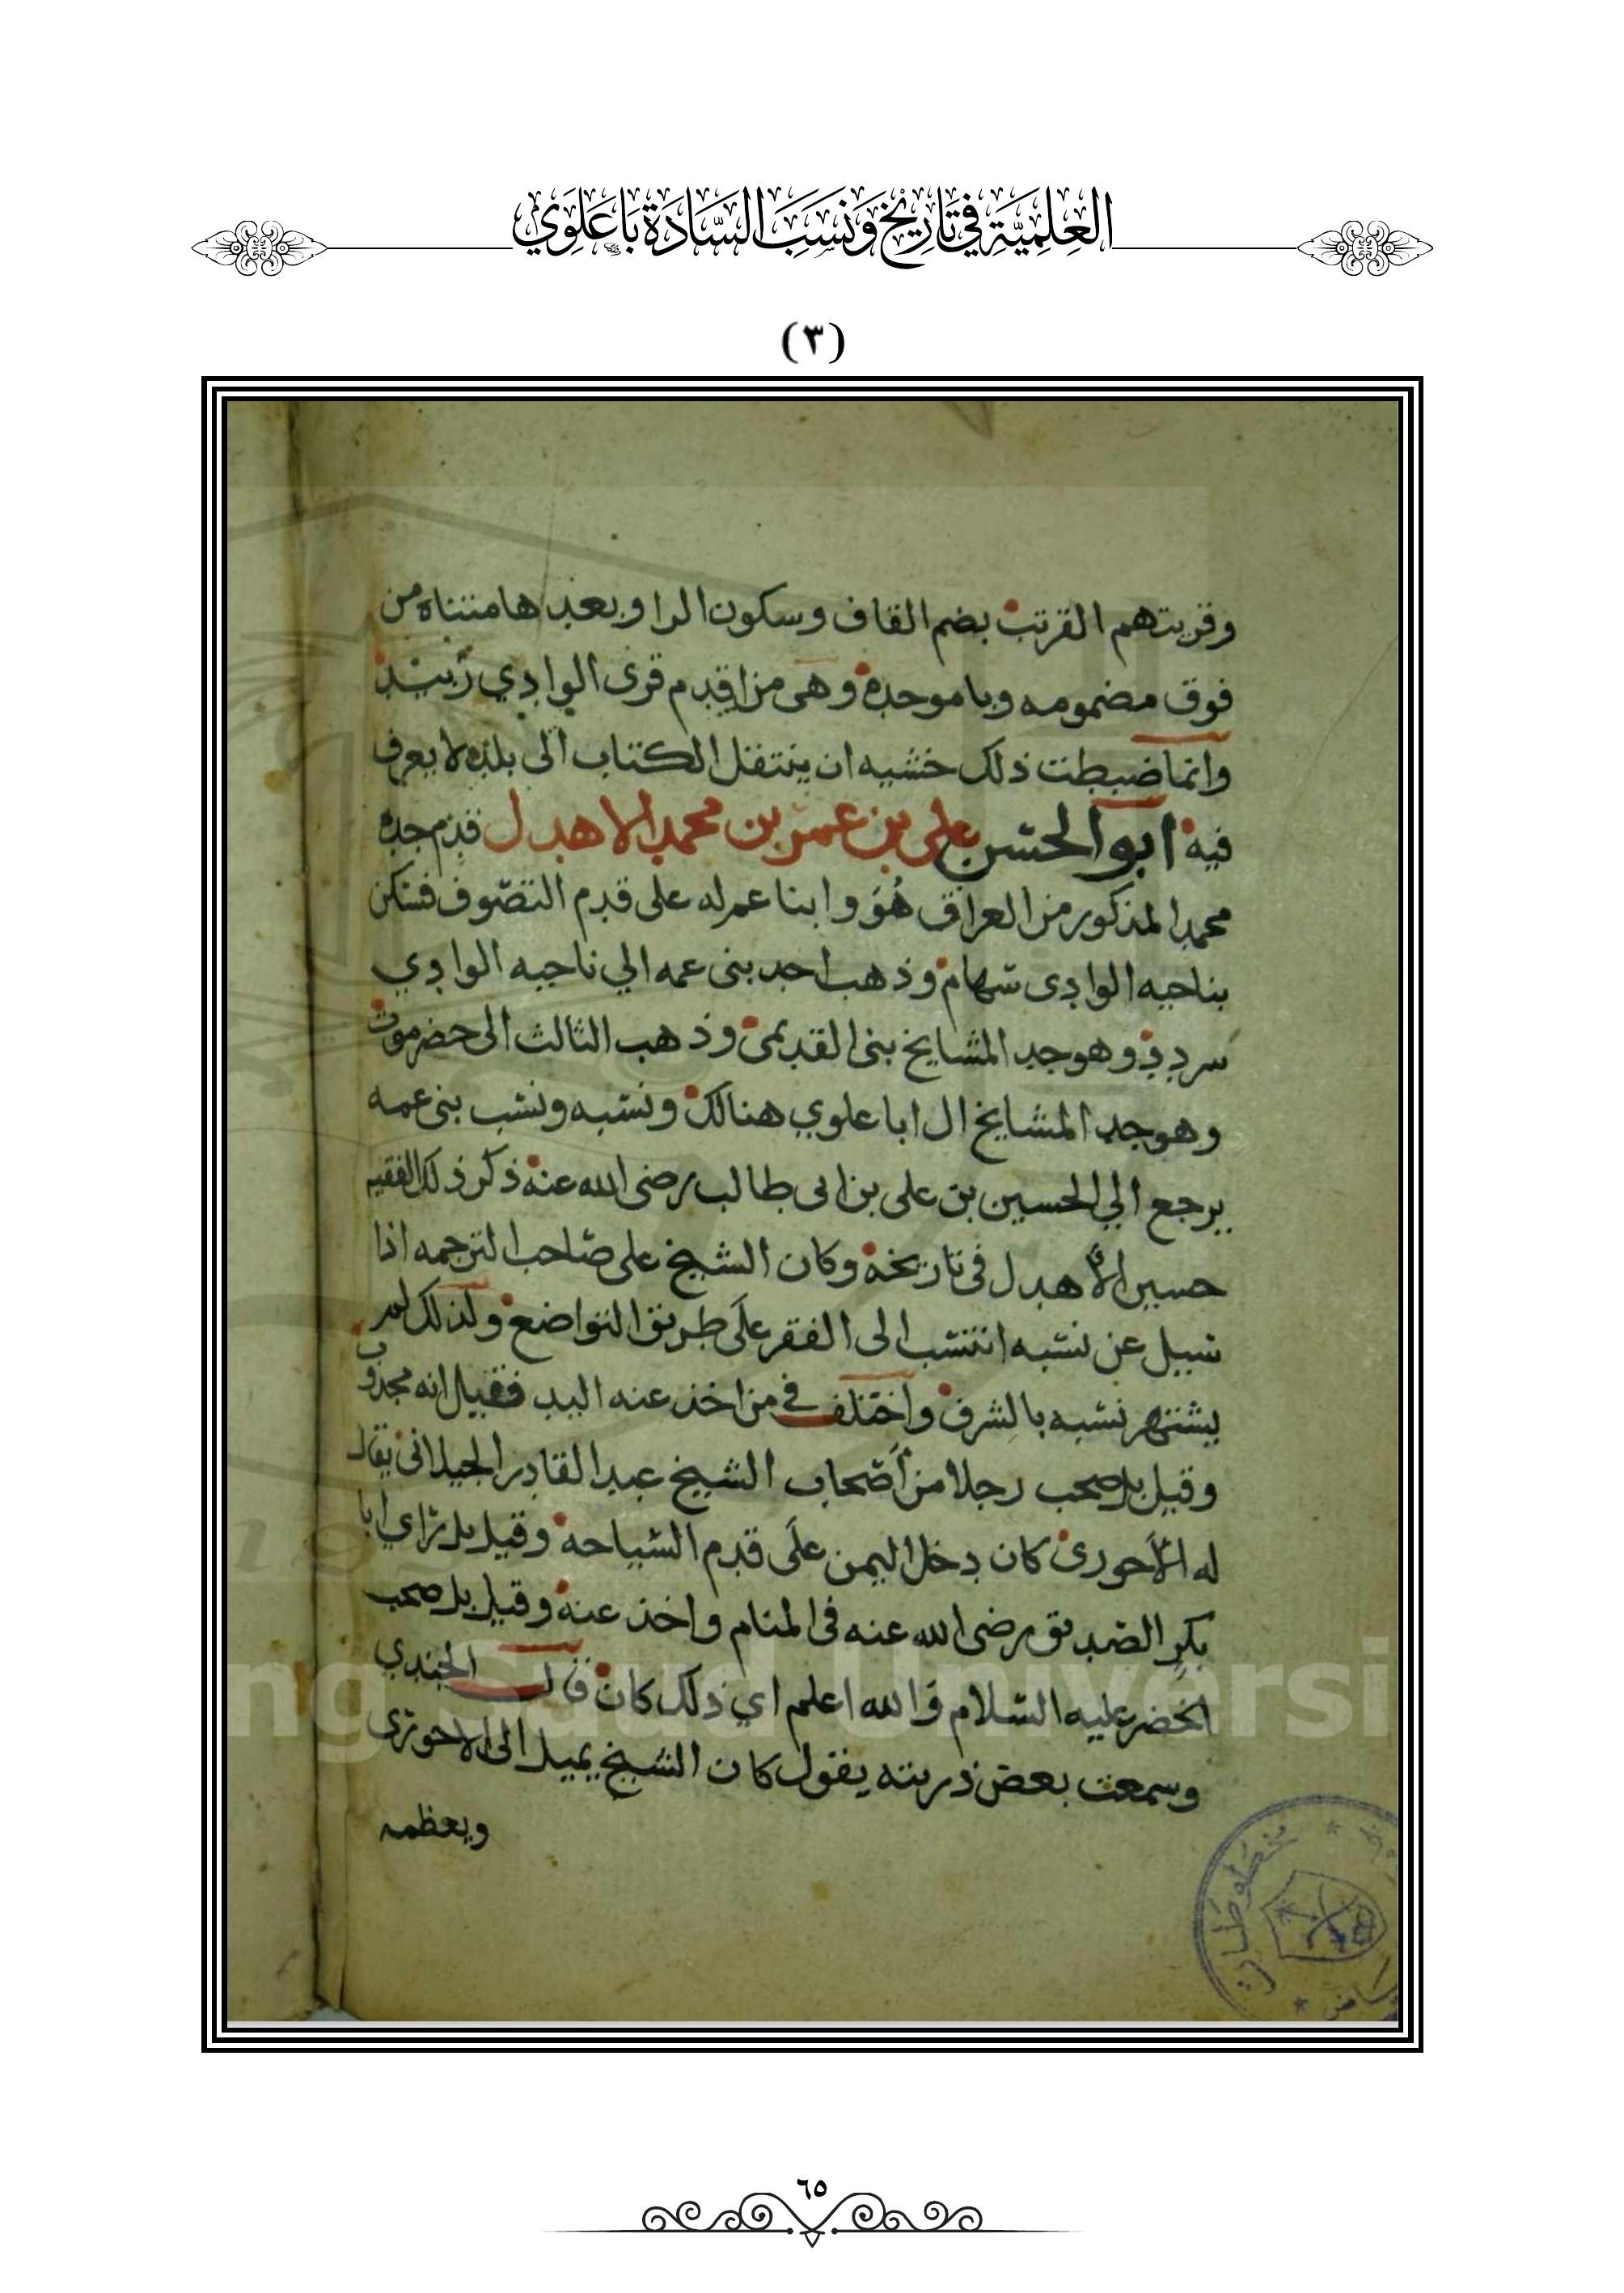 العِلْمِيَّة فِي تَارِيْخ وَنَسَبَ السَّادَة بَاعَلَوِي
(٣)
وقريتهم القرتب بضم القاف وسكون الرا وبعدها مثناه من
فوق مضمومه وبا موحده وهى من اقدم قرى الوادي زبيد
وانما ضبطت ذلك خشيه ان ينتقل الكتاب الى بلده لا يعرف
فيه ابو الحسن على بن عمر بن محمد الاهدل قدم جده
محمد المذكور من العراق هُوَ وابنا عم له على قدم التصّوف فسكن
بناحيه الوادى سهام وذهب احد بنى عمه الي ناحيه الوادي
سردد وهو جد المشايخ بنى القديمى وذهب الثالث الى حضرموت
وهو جد المشايخ ال ابا علوي هنالك ونسبه ونسب بنى عمه
يرجع الي الحسين بن على بن ابى طالب رضى الله عنه ذكر ذلك الفقيه
حسين الأهدل فى تاريخه وكان الشيخ على صاحب الترجمه اذا
سييل عن نسبه انتسب الى الفقر علَى طريق التواضع ولذلك لم
يشتهر نسبه بالشرف واختلف في من اخذ عنه اليد فقيل انه مجذوب
وقيل بل صحب رجلا من أصحاب الشيخ عبد القادر الجيلانى يقال
له الأحورى كان دخل اليمن علَى قدم السياحه وقيل بل راي ابا
بكر الصديق رضى الله عنه فى المنام واخذ عنه وقيل بل صحب
الخضر عليه السلام والله اعلم اي ذلك كان قال الجندي
وسمعت بعض ذريته يقول كان الشيخ يميل الى الاحورى
ويعظمه
ng Saud Universi
مخطوطات
٦٥